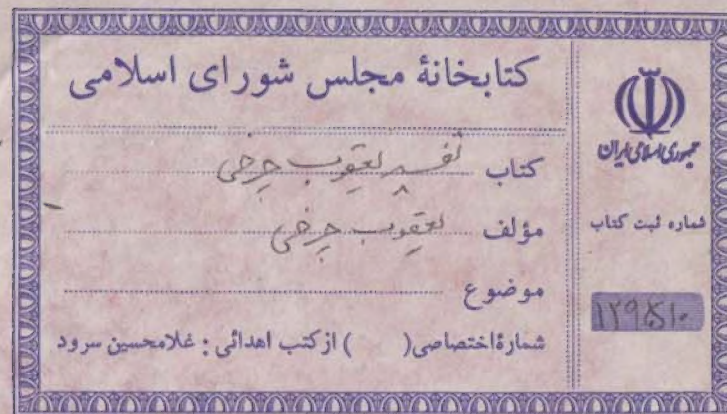 کتابخانهٔ مجلس شورای اسلامی
کتاب تفسیر یعقوب چرخی
مؤلف یعقوب چرخی
موضوع
شمارهٔ اختصاصی( ) از کتب اهدائی : غلامحسین سرود
جمهوری اسلامی ایران
شماره ثبت کتاب